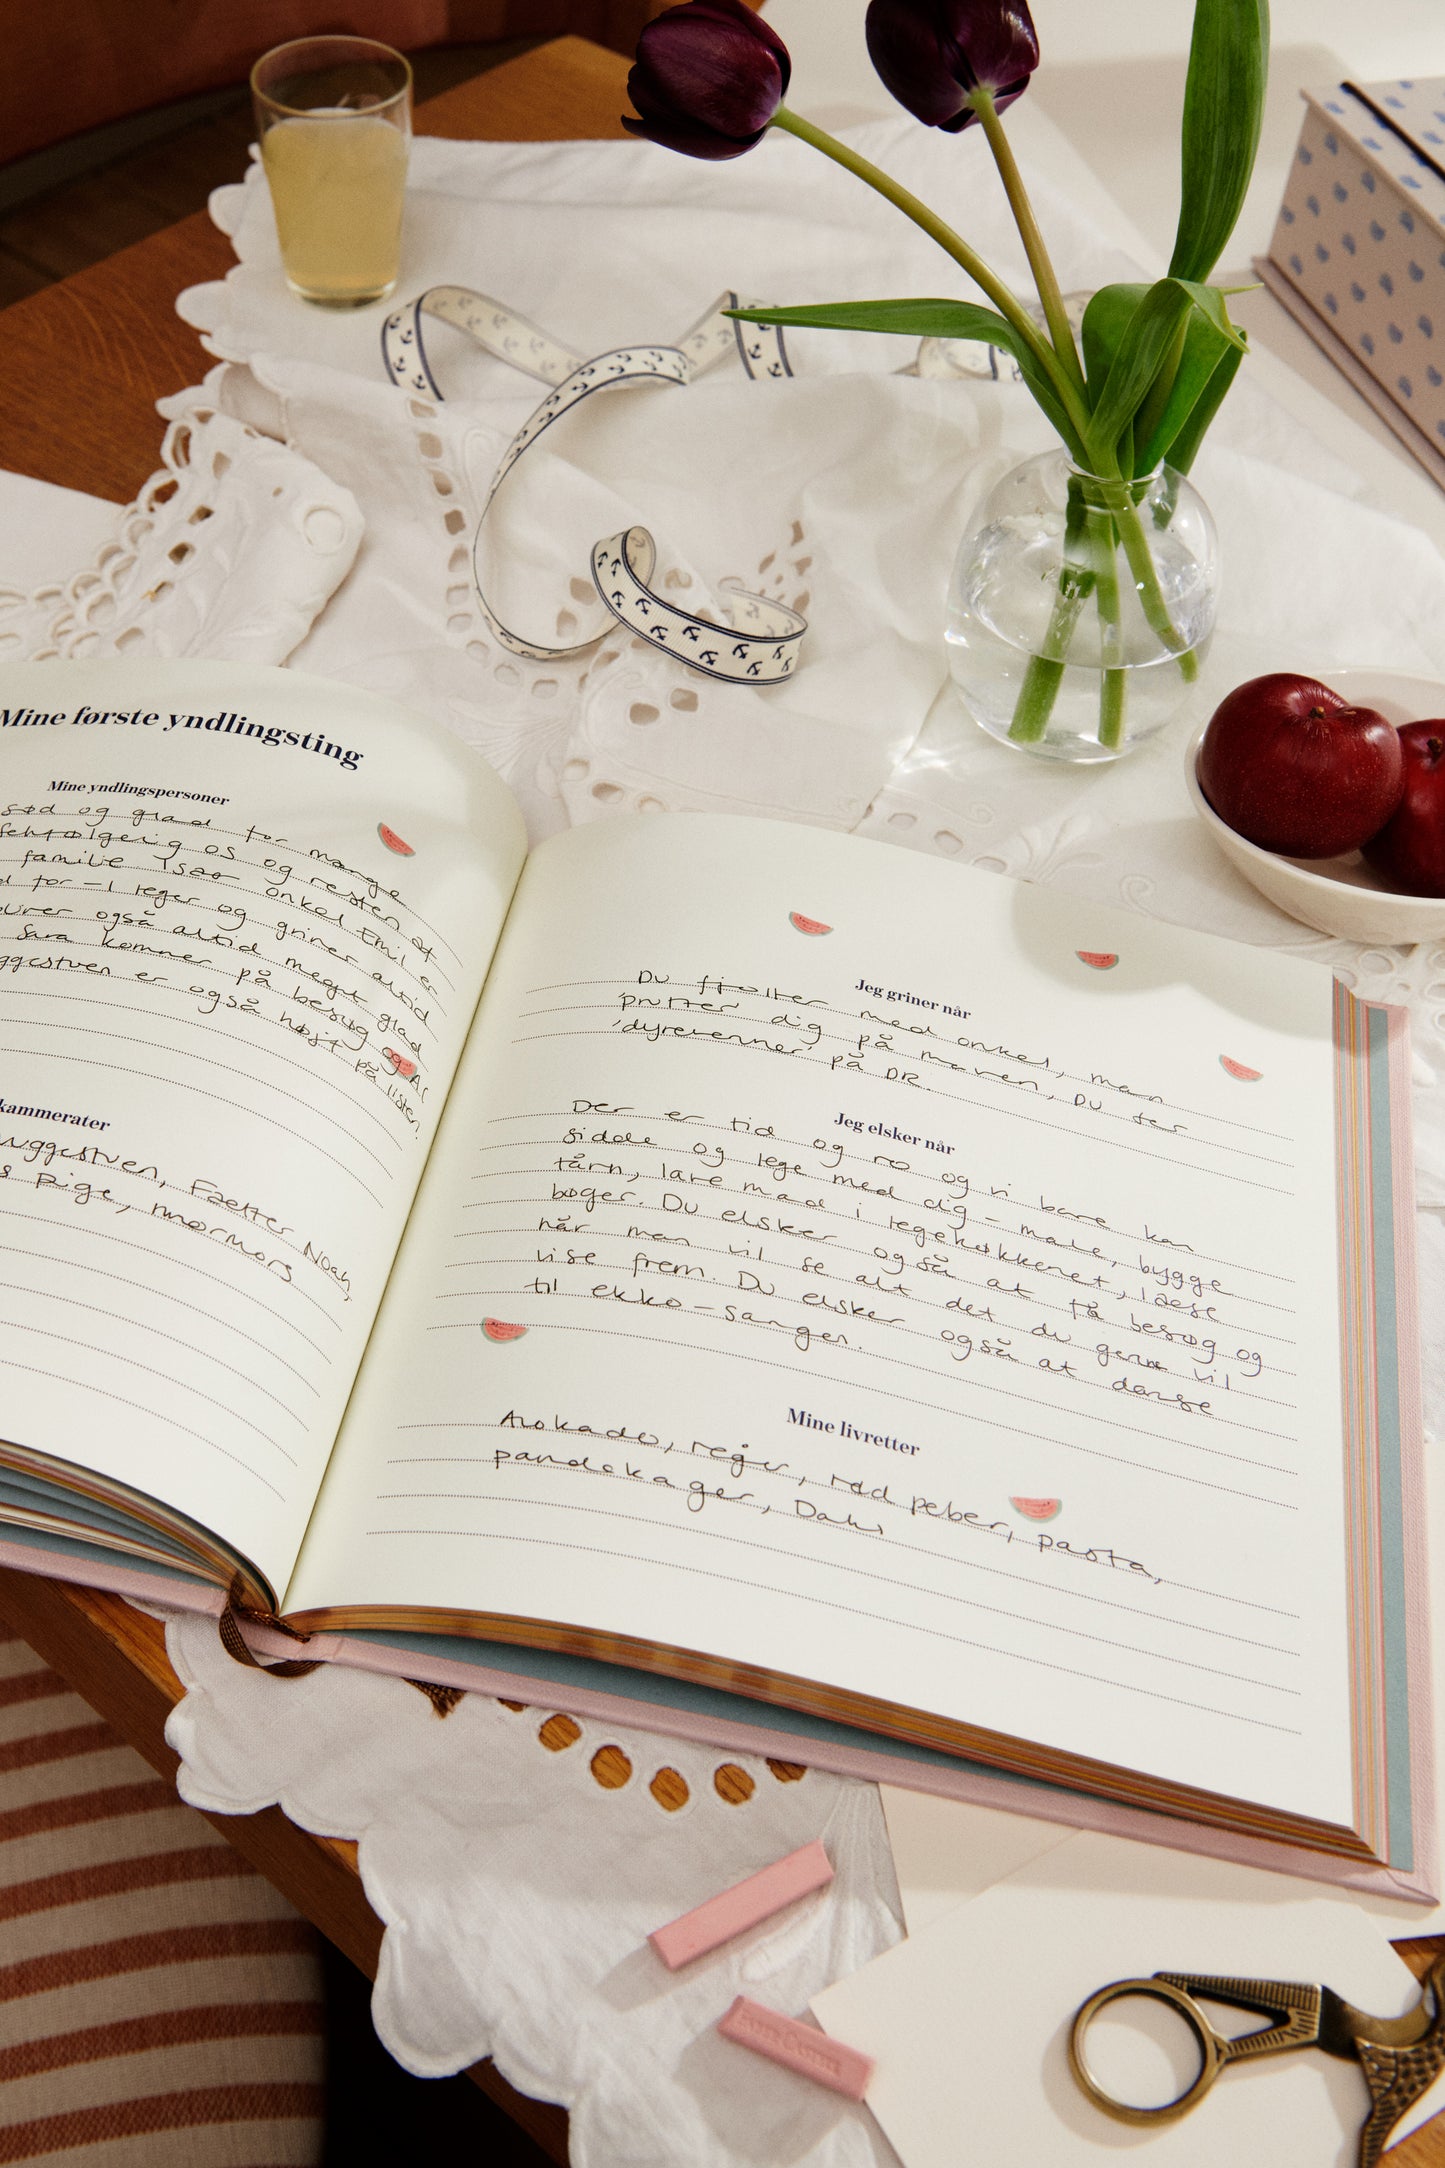 Mine første yndlingsting
Mine yndlingspersoner
sød og glad for mange
selvfølgelig os og resten af
familie Især onkel Emil er
for - I leger og griner altid
også altid meget glad
Sara kommer på besøg og
er også højt på listen.
kammerater
Fætter Noah,
Pige, mormors
Jeg griner når
Du fjoller med onkel, man
'prutter' dig på maven, Du ser
'dyrevenner' på DR.
Jeg elsker når
Der er tid og ro og vi bare kan
sidde og lege med dig - male, bygge
tårn, lave mad i legekøkkenet, læse
bøger. Du elsker også at få besøg og
når man vil se alt det du gerne vil
vise frem. Du elsker også at danse
til ekko-sangen.
Mine livretter
Avokado, rejer, rød peber, pasta,
pandekager, Dahl
FABER-CASTELL